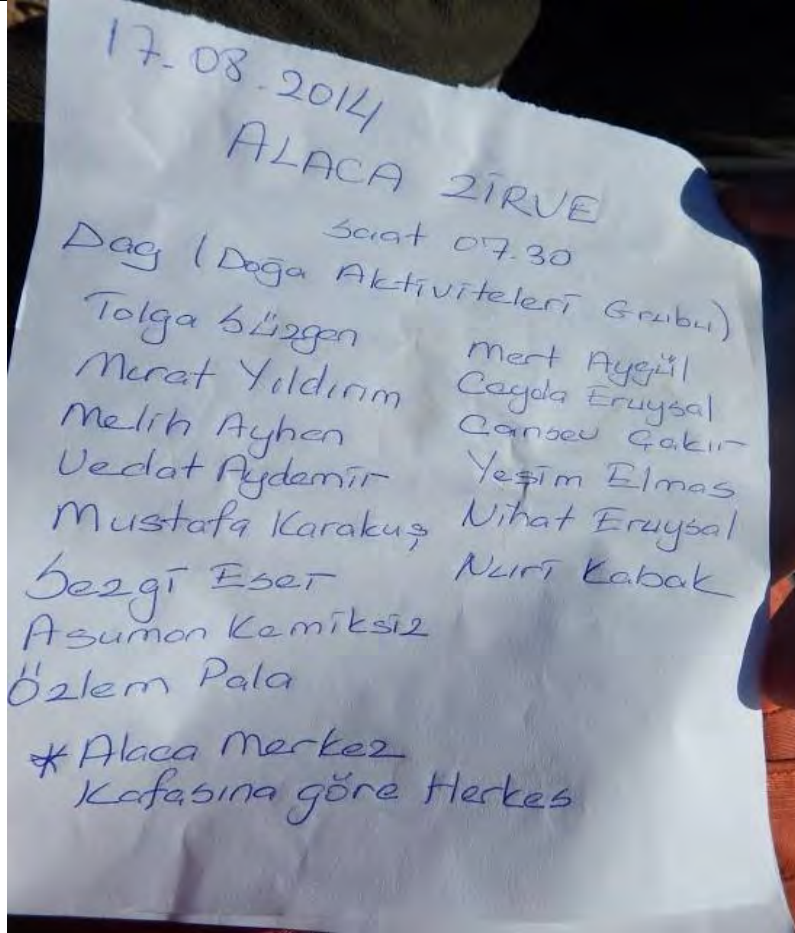 17.08.2014
ALACA ZİRVE
Saat 07.30
Dag (Doğa Aktiviteleri Grubu)
Tolga Süzgen
Murat Yıldırım
Melih Ayhan
Vedat Aydemir
Mustafa Karakuş
Sezgi Eser
Asuman Kemiksiz
Özlem Pala
Mert Aygül
Cayda Eruysal
Cansev Çakır
Yeşim Elmas
Nihat Eruysal
Nuri Kabak
* Alaca Merkez
Kafasına göre Herkes